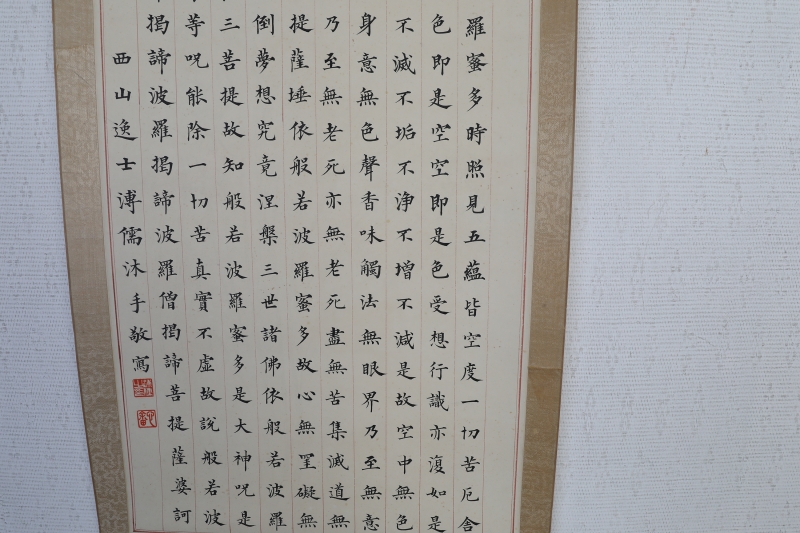 羅蜜多時照見五蘊皆空度一切苦厄舍
色即是空空即是色受想行識亦復如是
不滅不垢不淨不增不減是故空中無色
身意無色聲香味觸法無眼界乃至無意
乃至無老死亦無老死盡無苦集滅道無
提薩埵依般若波羅蜜多故心無罣礙無
倒夢想究竟涅槃三世諸佛依般若波羅
三菩提故知般若波羅蜜多是大神咒是
等咒能除一切苦真實不虛故說般若波
揭諦波羅揭諦波羅僧揭諦菩提薩婆訶
西山逸士溥儒沐手敬寫